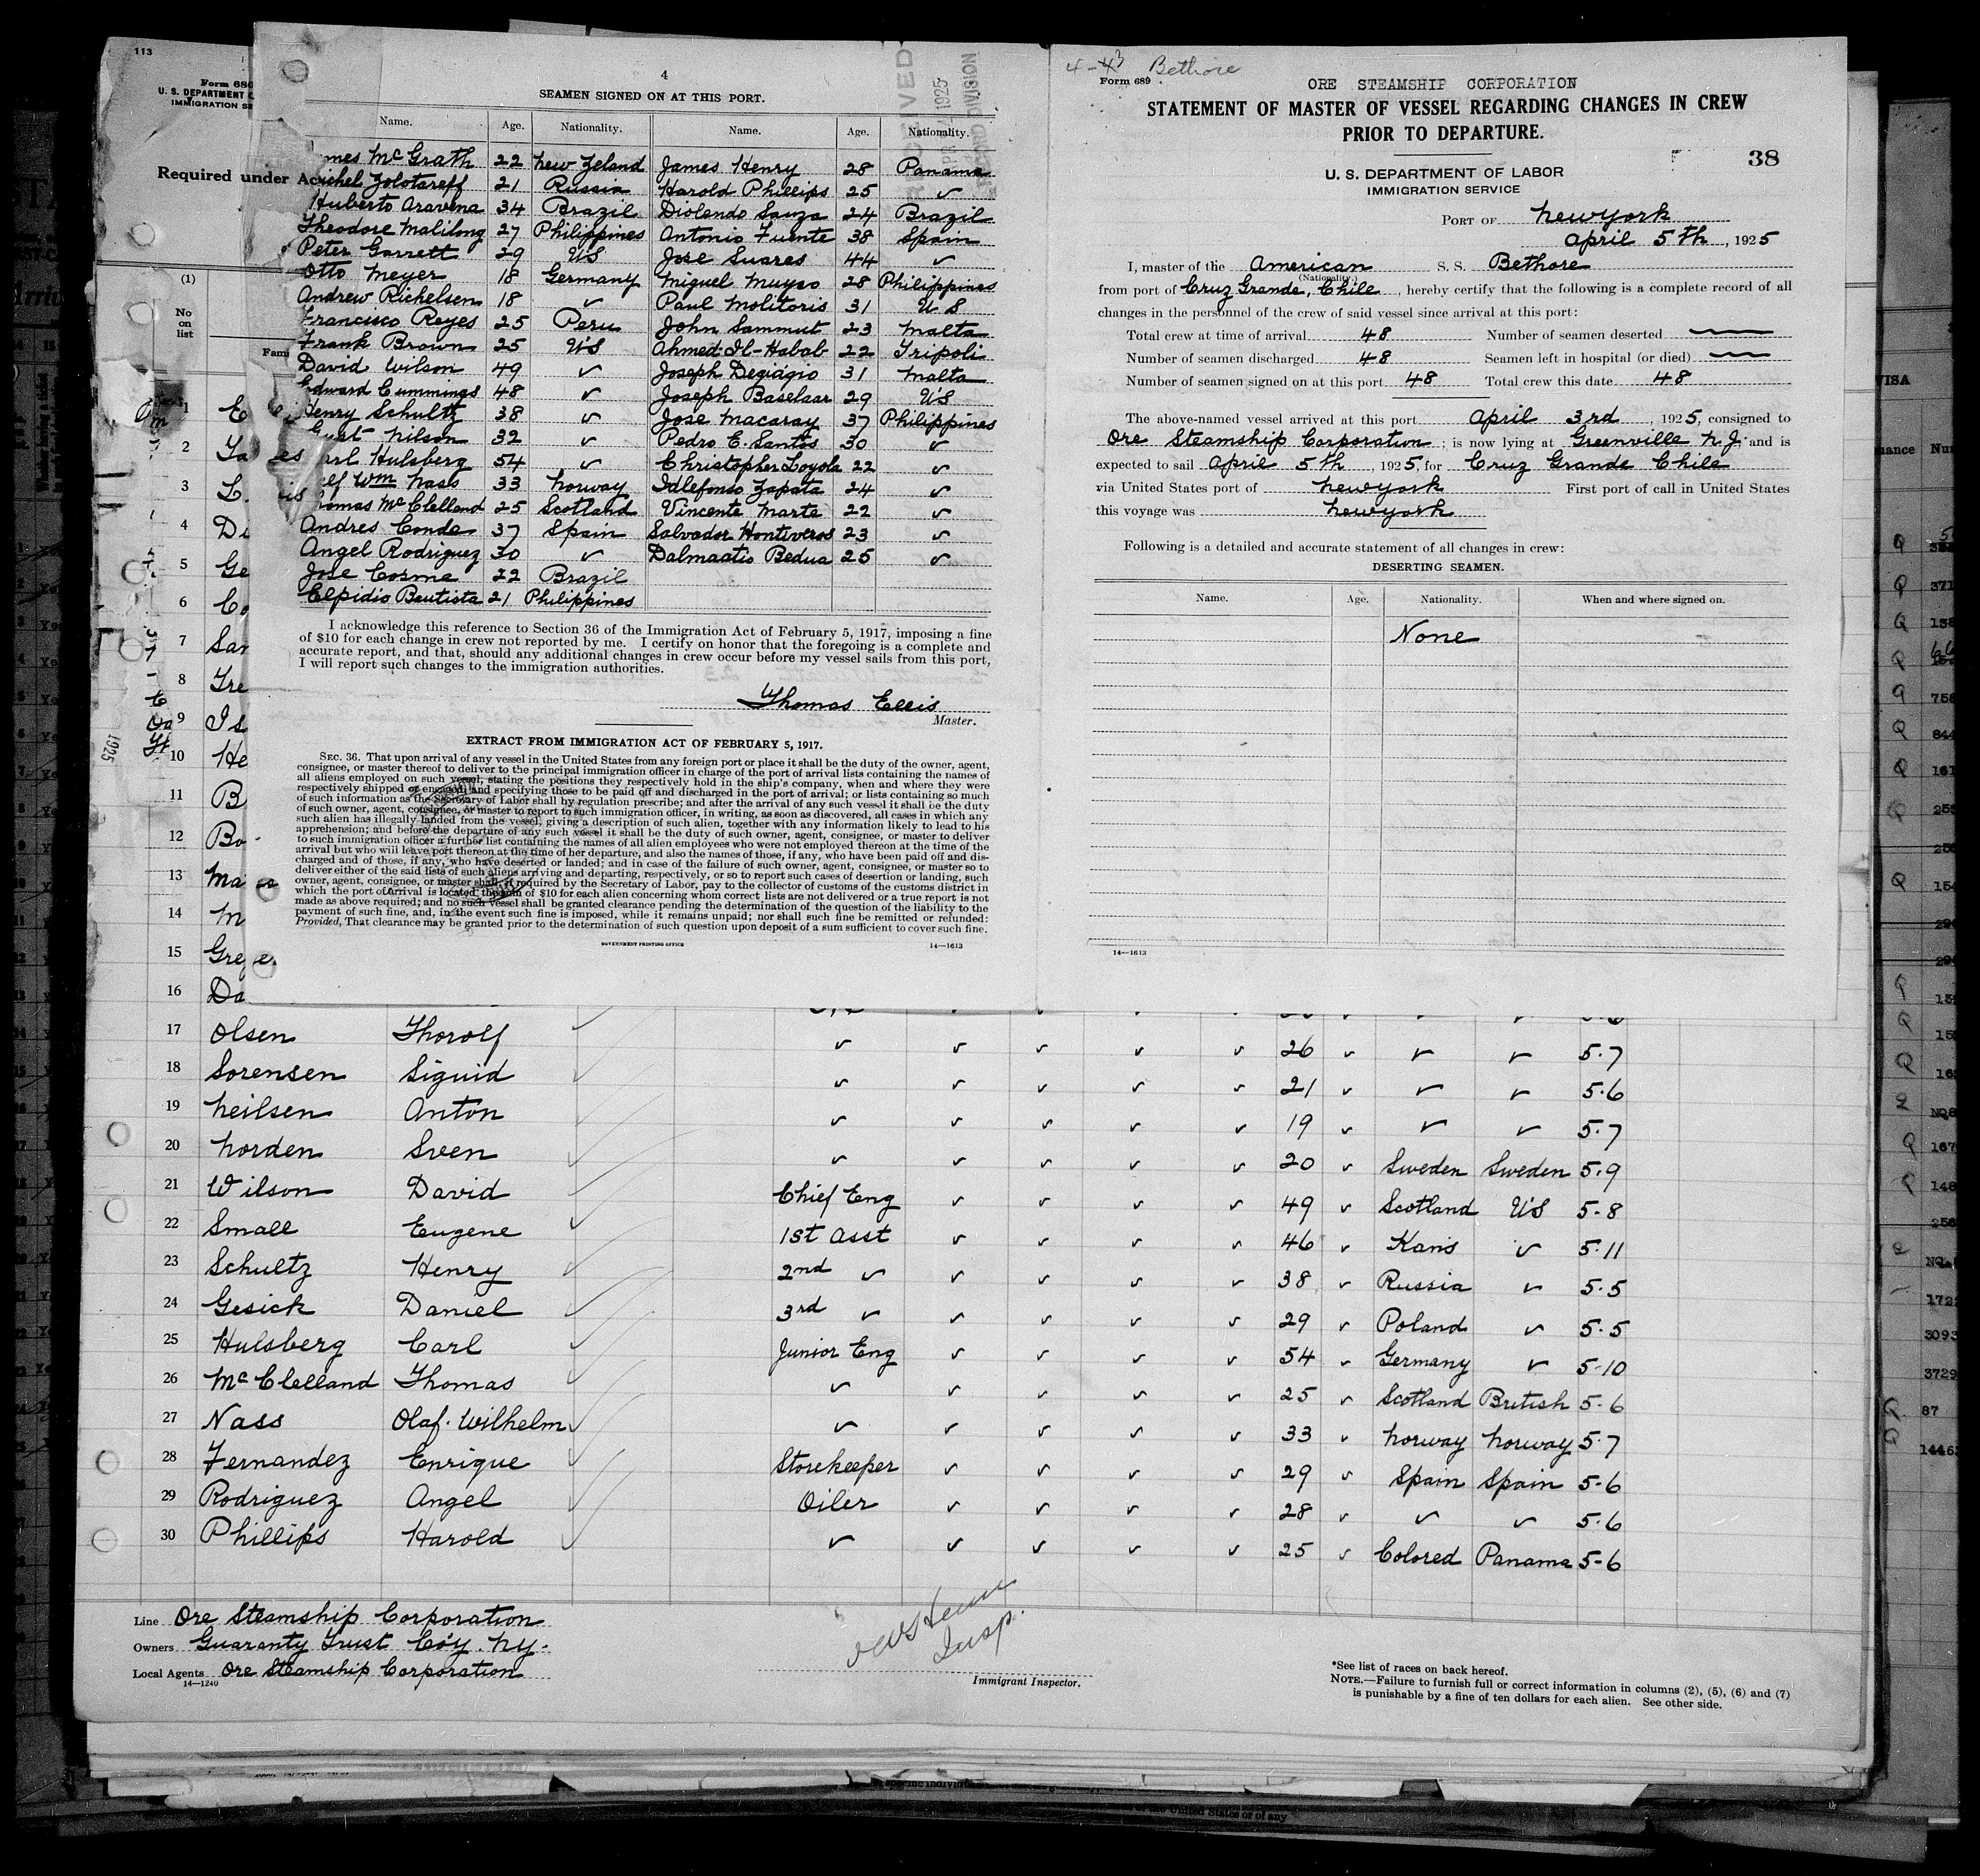 113
Form 680
U. S. DEPARTMENT O
IMMIGRATION SE
Required under Ac
(1)
No
on
list
Fami
4
SEAMEN SIGNED ON AT THIS PORT.
Name. Age. Nationality. Name. Age. Nationality.
mes McGrath 22 New Zeland James Henry 28 Panama
ichel Zolotareff 21 Russia Harold Phillips 25 ✓
Huberto Aravena 34 Brazil Diolendo Sauza 24 Brazil
Theodore Malilong 27 Philippines Antonio Fuente 38 Spain
Peter Garrett 29 US Jose Suares 44 ✓
Otto Meyer 18 Germany Miguel Muyco 28 Philippines
Andrew Richelsen 18 ✓ Paul Molitoris 31 U S
Francisco Reyes 25 Peru John Sammut 23 Malta
Frank Brown 25 US Ahmed Il-Habab 22 Tripoli
David Wilson 49 ✓ Joseph Degiagio 31 Malta
Edward Cummings 48 ✓ Joseph Baselaar 29 US
Henry Schultz 38 ✓ Jose Macaray 37 Philippines
Gust Nilson 32 ✓ Pedro E. Santos 30 ✓
arl Hulsberg 54 ✓ Christopher Loyola 22 ✓
lf Wm Nass 33 Norway Idlefonso Zapata 24 ✓
homas McClelland 25 Scotland Vincente Marta 22 ✓
Andres Conde 37 Spain Salvador Hontiveros 23 ✓
Angel Rodriguez 30 ✓ Dalmaatio Bedua 25 ✓
Jose Cosme 22 Brazil
Elpidio Bautista 21 Philippines
I acknowledge this reference to Section 36 of the Immigration Act of February 5, 1917, imposing a fine
of $10 for each change in crew not reported by me. I certify on honor that the foregoing is a complete and
accurate report, and that, should any additional changes in crew occur before my vessel sails from this port,
I will report such changes to the immigration authorities.
Thomas Ellis
Master.
EXTRACT FROM IMMIGRATION ACT OF FEBRUARY 5, 1917.
SEC. 36. That upon arrival of any vessel in the United States from any foreign port or place it shall be the duty of the owner, agent,
consignee, or master thereof to deliver to the principal immigration officer in charge of the port of arrival lists containing the names of
all aliens employed on such vessel, stating the positions they respectively hold in the ship's company, when and where they were
respectively shipped or engaged, and specifying those to be paid off and discharged in the port of arrival; or lists containing so much
of such information as the Secretary of Labor shall by regulation prescribe; and after the arrival of any such vessel it shall be the duty
of such owner, agent, consignee, or master to report to such immigration officer, in writing, as soon as discovered, all cases in which any
such alien has illegally landed from the vessel, giving a description of such alien, together with any information likely to lead to his
apprehension; and before the departure of any such vessel it shall be the duty of such owner, agent, consignee, or master to deliver
to such immigration officer a further list containing the names of all alien employees who were not employed thereon at the time of the
arrival but who will leave port thereon at the time of her departure, and also the names of those, if any, who have been paid off and dis-
charged and of those, if any, who have deserted or landed; and in case of the failure of such owner, agent, consignee, or master so to
deliver either of the said lists of such aliens arriving and departing, respectively, or so to report such cases of desertion or landing, such
owner, agent, consignee, or master shall, if required by the Secretary of Labor, pay to the collector of customs of the customs district in
which the port of arrival is located the sum of $10 for each alien concerning whom correct lists are not delivered or a true report is not
made as above required; and no such vessel shall be granted clearance pending the determination of the question of the liability to the
payment of such fine, and, in the event such fine is imposed, while it remains unpaid; nor shall such fine be remitted or refunded:
Provided, That clearance may be granted prior to the determination of such question upon deposit of a sum sufficient to cover such fine.
GOVERNMENT PRINTING OFFICE
14—1613
4-43 Bethore
Form 689
ORE STEAMSHIP CORPORATION
STATEMENT OF MASTER OF VESSEL REGARDING CHANGES IN CREW
PRIOR TO DEPARTURE.
38
U. S. DEPARTMENT OF LABOR
IMMIGRATION SERVICE
PORT OF New York
April 5th, 1925
I, master of the American S. S. Bethore
(Nationality.)
from port of Cruz Grande, Chile, hereby certify that the following is a complete record of all
changes in the personnel of the crew of said vessel since arrival at this port:
Total crew at time of arrival 48 Number of seamen deserted —
Number of seamen discharged 48 Seamen left in hospital (or died) —
Number of seamen signed on at this port 48 Total crew this date 48
The above-named vessel arrived at this port April 3rd, 1925, consigned to
Ore Steamship Corporation; is now lying at Greenville N.J. and is
expected to sail April 5th, 1925, for Cruz Grande Chile
via United States port of New York First port of call in United States
this voyage was New York
Following is a detailed and accurate statement of all changes in crew:
DESERTING SEAMEN.
Name. Age. Nationality. When and where signed on.
None
14—1613
1 E
2 Ja
3 L
4 Di
5 Ge
6 Co
7 Sar
8 Tre
9 Is
10 He
11 B
12 Bo
13 Ma
14 M
15 Gre
16 Da
17 Olsen Thorolf ✓ ✓ ✓ ✓ ✓ 26 ✓ ✓ ✓ 5.7
18 Sorensen Siguid ✓ ✓ ✓ ✓ ✓ 21 ✓ ✓ ✓ 5.6
19 Neilsen Anton ✓ ✓ ✓ ✓ ✓ 19 ✓ ✓ ✓ 5.7
20 Norden Sven ✓ ✓ ✓ ✓ ✓ 20 ✓ Sweden Sweden 5.9
21 Wilson David Chief Eng ✓ ✓ ✓ ✓ 49 ✓ Scotland US 5-8
22 Small Eugene 1st Asst ✓ ✓ ✓ ✓ 46 ✓ Kans ✓ 5.11
23 Schultz Henry 2nd ✓ ✓ ✓ ✓ ✓ 38 ✓ Russia ✓ 5.5
24 Gesick Daniel 3rd ✓ ✓ ✓ ✓ ✓ 29 ✓ Poland ✓ 5.5
25 Hulsberg Carl Junior Eng ✓ ✓ ✓ ✓ 54 ✓ Germany ✓ 5-10
26 McClelland Thomas ✓ ✓ ✓ ✓ ✓ 25 ✓ Scotland British 5-6
27 Nass Olaf. Wilhelm ✓ ✓ ✓ ✓ ✓ 33 ✓ Norway Norway 5.7
28 Fernandez Enrique Storekeeper ✓ ✓ ✓ ✓ 29 ✓ Spain Spain 5-6
29 Rodriguez Angel Oiler ✓ ✓ ✓ ✓ 28 ✓ ✓ ✓ 5.6
30 Phillips Harold ✓ ✓ ✓ ✓ ✓ 25 ✓ Colored Panama 5-6
Line Ore Steamship Corporation
Owners Guaranty Trust Coy. N.y.
Local Agents Ore Steamship Corporation
14—1240
Insp.
Immigrant Inspector.
*See list of races on back hereof.
NOTE.—Failure to furnish full or correct information in columns (2), (5), (6) and (7)
is punishable by a fine of ten dollars for each alien. See other side.